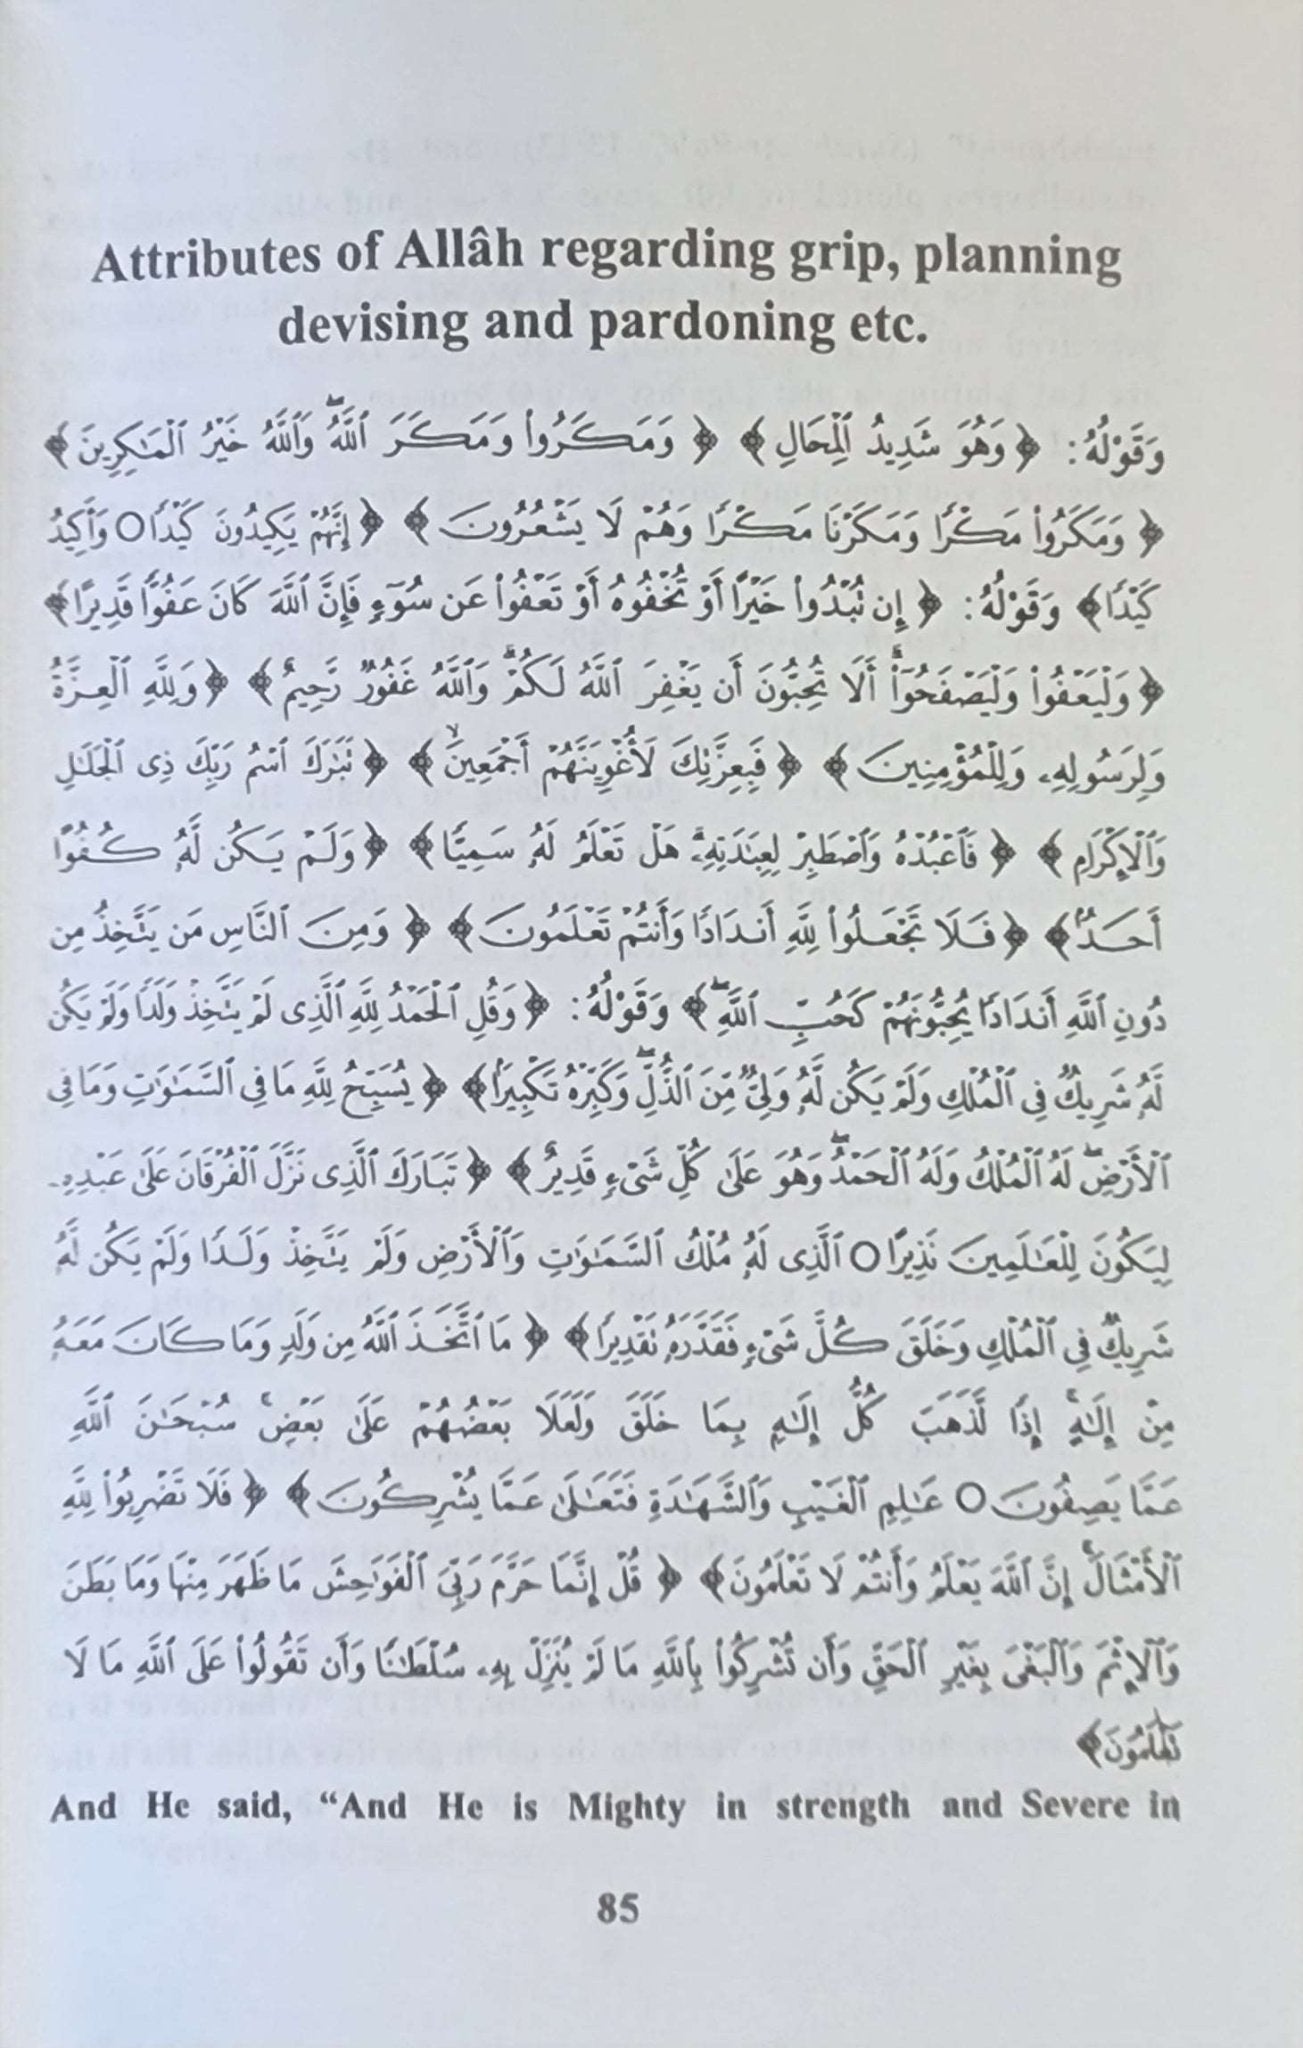 Attributes of Allâh regarding grip, planning
devising and pardoning etc.
وَقَوْلُهُ: ﴿وَهُوَ شَدِيدُ ٱلْمِحَالِ﴾ ﴿وَمَكَرُوا۟ وَمَكَرَ ٱللَّهُ ۖ وَٱللَّهُ خَيْرُ ٱلْمَـٰكِرِينَ﴾
﴿وَمَكَرُوا۟ مَكْرًا وَمَكَرْنَا مَكْرًا وَهُمْ لَا يَشْعُرُونَ﴾ ﴿إِنَّهُمْ يَكِيدُونَ كَيْدًا ○ وَأَكِيدُ
كَيْدًا﴾ وَقَوْلُهُ: ﴿إِن تُبْدُوا۟ خَيْرًا أَوْ تُخْفُوهُ أَوْ تَعْفُوا۟ عَن سُوٓءٍ فَإِنَّ ٱللَّهَ كَانَ عَفُوًّا قَدِيرًا﴾
﴿وَلْيَعْفُوا۟ وَلْيَصْفَحُوٓا۟ ۗ أَلَا تُحِبُّونَ أَن يَغْفِرَ ٱللَّهُ لَكُمْ ۗ وَٱللَّهُ غَفُورٌ رَّحِيمٌ﴾ ﴿وَلِلَّهِ ٱلْعِزَّةُ
وَلِرَسُولِهِۦ وَلِلْمُؤْمِنِينَ﴾ ﴿فَبِعِزَّتِكَ لَأُغْوِيَنَّهُمْ أَجْمَعِينَ﴾ ﴿تَبَـٰرَكَ ٱسْمُ رَبِّكَ ذِى ٱلْجَلَـٰلِ
وَٱلْإِكْرَامِ﴾ ﴿فَٱعْبُدْهُ وَٱصْطَبِرْ لِعِبَـٰدَتِهِۦ ۚ هَلْ تَعْلَمُ لَهُۥ سَمِيًّا﴾ ﴿وَلَمْ يَكُن لَّهُۥ كُفُوًا
أَحَدٌۢ﴾ ﴿فَلَا تَجْعَلُوا۟ لِلَّهِ أَندَادًا وَأَنتُمْ تَعْلَمُونَ﴾ ﴿وَمِنَ ٱلنَّاسِ مَن يَتَّخِذُ مِن
دُونِ ٱللَّهِ أَندَادًا يُحِبُّونَهُمْ كَحُبِّ ٱللَّهِ ۖ﴾ وَقَوْلُهُ: ﴿وَقُلِ ٱلْحَمْدُ لِلَّهِ ٱلَّذِى لَمْ يَتَّخِذْ وَلَدًا وَلَمْ يَكُن
لَّهُۥ شَرِيكٌ فِى ٱلْمُلْكِ وَلَمْ يَكُن لَّهُۥ وَلِىٌّ مِّنَ ٱلذُّلِّ ۖ وَكَبِّرْهُ تَكْبِيرًا﴾ ﴿يُسَبِّحُ لِلَّهِ مَا فِى ٱلسَّمَـٰوَٰتِ وَمَا فِى
ٱلْأَرْضِ ۖ لَهُ ٱلْمُلْكُ وَلَهُ ٱلْحَمْدُ ۖ وَهُوَ عَلَىٰ كُلِّ شَىْءٍ قَدِيرٌ﴾ ﴿تَبَارَكَ ٱلَّذِى نَزَّلَ ٱلْفُرْقَانَ عَلَىٰ عَبْدِهِۦ
لِيَكُونَ لِلْعَـٰلَمِينَ نَذِيرًا ○ ٱلَّذِى لَهُۥ مُلْكُ ٱلسَّمَـٰوَٰتِ وَٱلْأَرْضِ وَلَمْ يَتَّخِذْ وَلَدًا وَلَمْ يَكُن لَّهُۥ
شَرِيكٌ فِى ٱلْمُلْكِ وَخَلَقَ كُلَّ شَىْءٍ فَقَدَّرَهُۥ تَقْدِيرًا﴾ ﴿مَا ٱتَّخَذَ ٱللَّهُ مِن وَلَدٍ وَمَا كَانَ مَعَهُۥ
مِنْ إِلَـٰهٍ ۚ إِذًا لَّذَهَبَ كُلُّ إِلَـٰهٍۭ بِمَا خَلَقَ وَلَعَلَا بَعْضُهُمْ عَلَىٰ بَعْضٍ ۚ سُبْحَـٰنَ ٱللَّهِ
عَمَّا يَصِفُونَ ○ عَـٰلِمِ ٱلْغَيْبِ وَٱلشَّهَـٰدَةِ فَتَعَـٰلَىٰ عَمَّا يُشْرِكُونَ﴾ ﴿فَلَا تَضْرِبُوا۟ لِلَّهِ
ٱلْأَمْثَالَ ۚ إِنَّ ٱللَّهَ يَعْلَمُ وَأَنتُمْ لَا تَعْلَمُونَ﴾ ﴿قُلْ إِنَّمَا حَرَّمَ رَبِّىَ ٱلْفَوَٰحِشَ مَا ظَهَرَ مِنْهَا وَمَا بَطَنَ
وَٱلْإِثْمَ وَٱلْبَغْىَ بِغَيْرِ ٱلْحَقِّ وَأَن تُشْرِكُوا۟ بِٱللَّهِ مَا لَمْ يُنَزِّلْ بِهِۦ سُلْطَـٰنًا وَأَن تَقُولُوا۟ عَلَى ٱللَّهِ مَا لَا
تَعْلَمُونَ﴾
And He said, “And He is Mighty in strength and Severe in
85